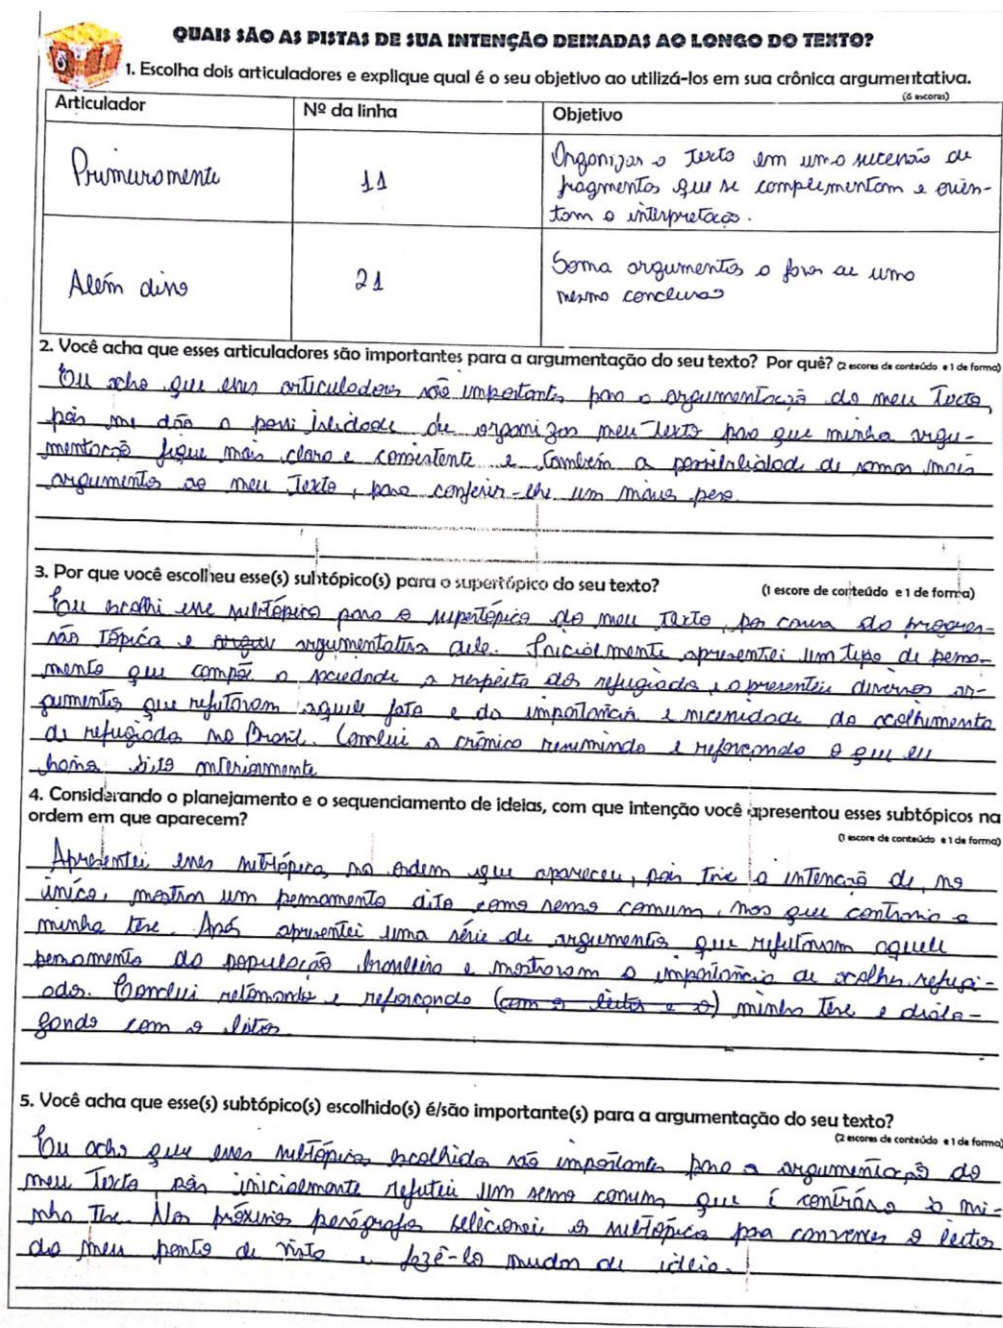 QUAIS SÃO AS PISTAS DE SUA INTENÇÃO DEIXADAS AO LONGO DO TEXTO?
1. Escolha dois articuladores e explique qual é o seu objetivo ao utilizá-los em sua crônica argumentativa.
(6 escores)
Articulador Nº da linha Objetivo
Primeiramente 11 Organizar o texto em uma sucessão de
fragmentos que se complementam e orien-
tam a interpretação.
Além disso 21 Soma argumentos a favor de uma
mesma conclusão
2. Você acha que esses articuladores são importantes para a argumentação do seu texto? Por quê? (2 escores de conteúdo e 1 de forma)
Eu acho que esses articuladores são importantes para a argumentação do meu texto,
pois me dão a possibilidade de organizar meu texto para que minha argu-
mentação fique mais clara e consistente e também a possibilidade de somar mais
argumentos ao meu texto, para conferir-lhe um maior peso
3. Por que você escolheu esse(s) subtópico(s) para o supertópico do seu texto? (1 escore de conteúdo e 1 de forma)
Eu escolhi esse subtópico para o supertópico do meu texto, por causa da progres-
são tópica e argumentativa dele. Inicialmente apresentei um tipo de pensa-
mento que compõe a sociedade a respeito dos refugiados, apresentei diversos ar-
gumentos que refutavam aquele fato e da importância e necessidade do acolhimento
de refugiados no Brasil. Conclui a crônica resumindo e reforçando o que eu
havia dito anteriormente
4. Considerando o planejamento e o sequenciamento de ideias, com que intenção você apresentou esses subtópicos na
ordem em que aparecem?
(1 escore de conteúdo e 1 de forma)
Apresentei esses subtópicos, na ordem que apareceu, pois tive a intenção de, no
início, mostrar um pensamento dito como senso comum, mas que contraria a
minha tese. Após apresentei uma série de argumentos que refutavam aquele
pensamento da população brasileira e mostravam a importância de acolher refugi-
ados. Conclui retomando e reforçando (com o leitor e o) minha tese e dialo-
gando com o leitor
5. Você acha que esse(s) subtópico(s) escolhido(s) é/são importante(s) para a argumentação do seu texto?
(2 escores de conteúdo e 1 de forma)
Eu acho que esses subtópicos escolhidos são importantes para a argumentação do
meu texto, pois inicialmente refutei um senso comum que é contrário à mi-
nha tese. Nos próximos parágrafos selecionei os subtópicos para convencer o leitor
do meu ponto de vista e fazê-lo mudar de ideia.